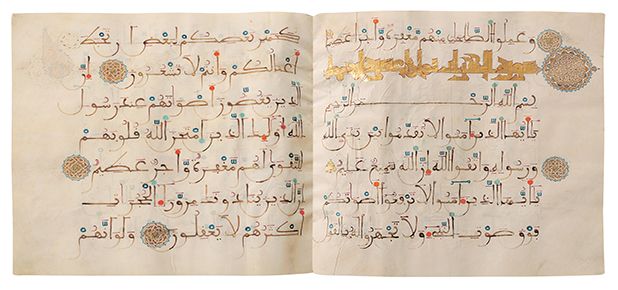 وعملوا الصلحت منهم مغفرة وأجرا عظيما
سورة الحجرات
بسم الله الرحمن الرحيم
يأيها الذين ءامنوا لا تقدموا بين يدي الله
ورسوله واتقوا الله إن الله سميع عليم
يأيها الذين ءامنوا لا ترفعوا أصوتكم
فوق صوت النبي ولا تجهروا له بالقول
كجهر بعضكم لبعض أن تحبط
أعملكم وأنتم لا تشعرون إن
الذين يغضون أصوتهم عند رسول
الله أولئك الذين امتحن الله قلوبهم
للتقوى لهم مغفرة وأجر عظيم
إن الذين ينادونك من وراء الحجرات
أكثرهم لا يعقلون ولو أنهم